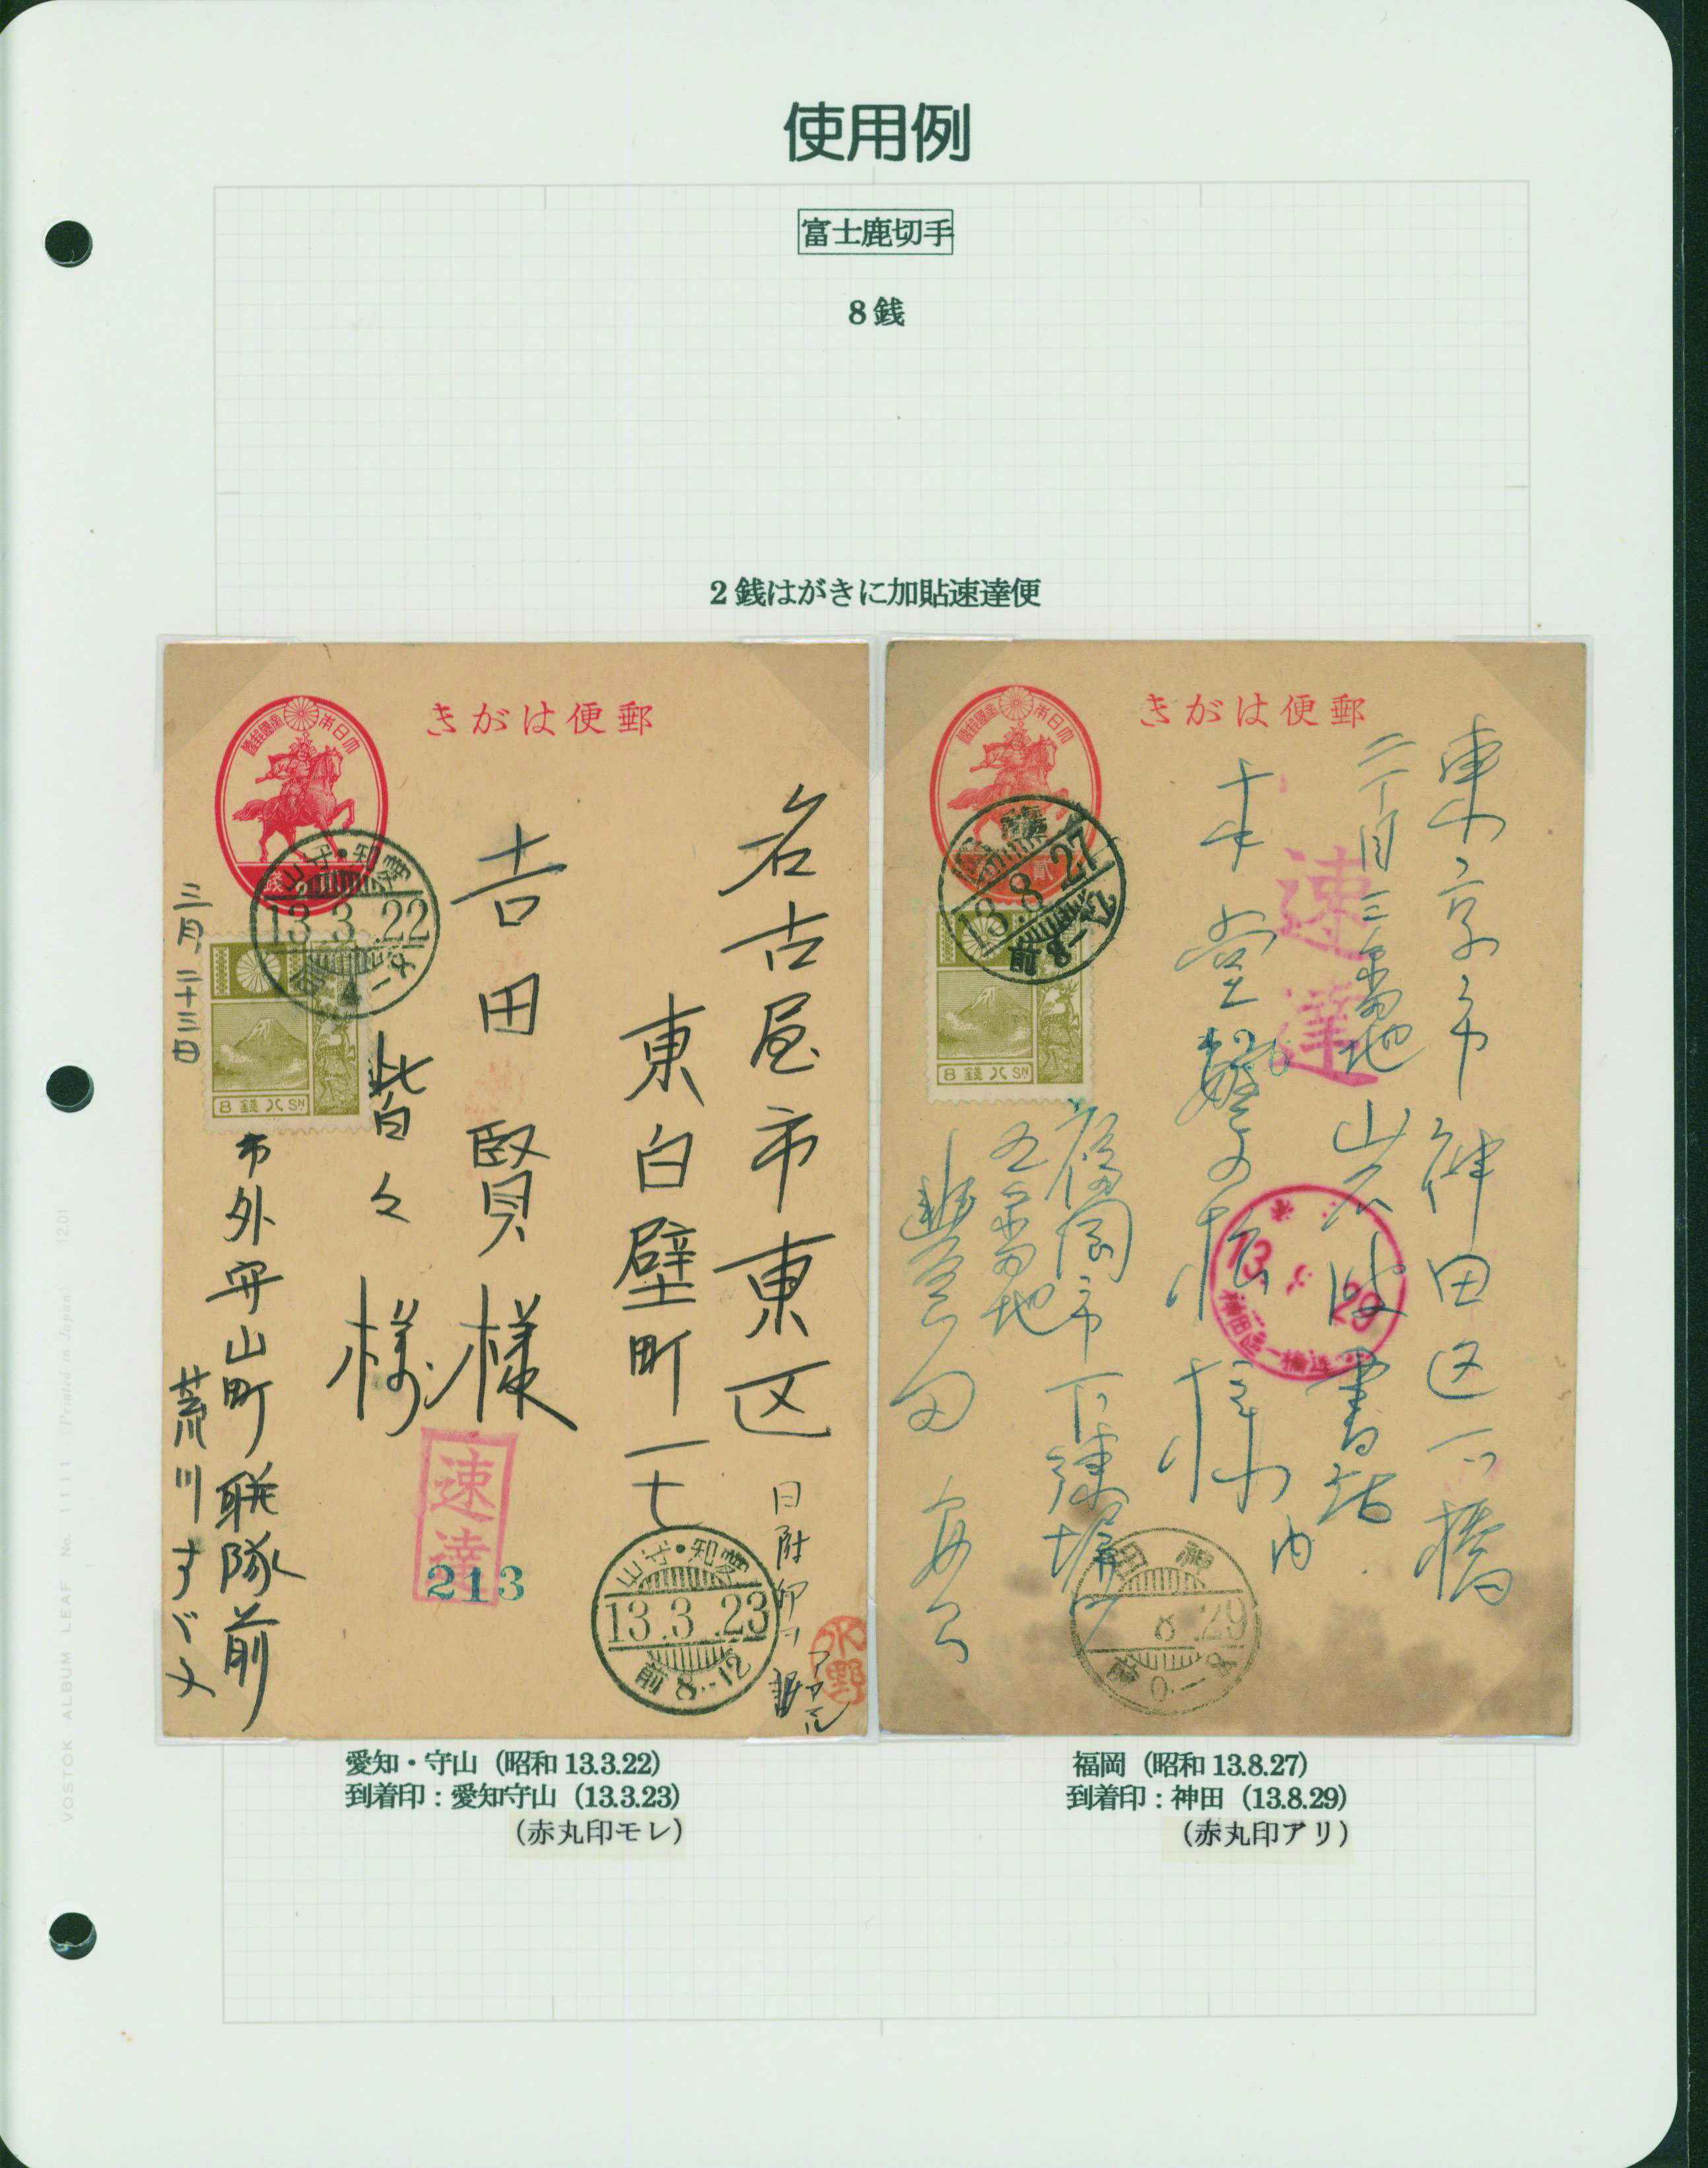 使用例
富士鹿切手
8銭
2銭はがきに加貼速達便
きがは便郵
名古屋市東区
東白壁町一七
吉田賢様
皆々様
三月二十三日
市外守山町聯隊前
荒川すゞ子
速達
213
山守・知愛
13.3.22
8銭八SN
山守・知愛
13.3.23
前8-12
水野
日附印ヲ
きがは便郵
東京市神田区一ツ橋
二丁目三番地
岩波書店内
速達
福岡市下
五番地
13.8.27
前
8銭八SN
13. 29
神田區一橋通
田神
8.29
前0-8
愛知・守山（昭和13.3.22）
到着印：愛知守山（13.3.23）
（赤丸印モレ）
福岡（昭和13.8.27）
到着印：神田（13.8.29）
（赤丸印アリ）
VOSTOK ALBUM LEAF No. 1111 (Printed in Japan) 1201